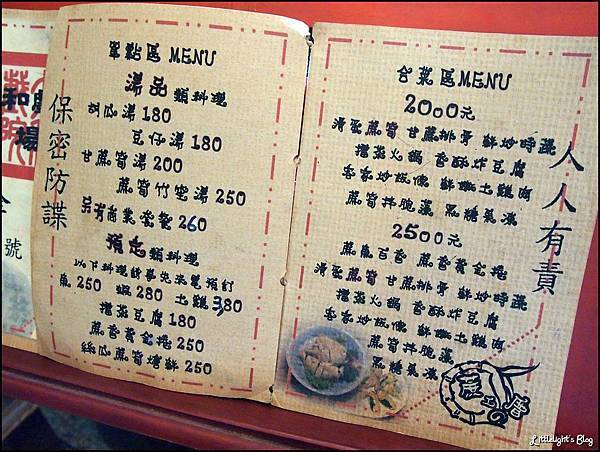 和興
場
號
保密防諜
單點區 MENU
湯品 類料理
胡瓜湯 180
豆仔湯 180
甘蔗筍湯 200
蔗筍竹笙湯 250
商業套餐 260
預定 類料理
以下料理請事先來電預訂
魚 250 蝦 280 土雞 380
擂茶豆腐 180
蔗香黃金捲 250
絲瓜蔗筍燴鮮 250
合菜區 MENU
2000元
蔗筍 甘蔗排骨 鮮炒時蔬
擂茶火鍋 香酥炸豆腐
客家炒粄條 鮮嫩土雞肉
蔗筍拌脆藻 黑糖蒸凍
2500元
蔗香黃金捲
蔗筍 甘蔗排骨 鮮炒時蔬
擂茶火鍋 香酥炸豆腐
客家炒粄條 鮮嫩土雞肉
蔗筍拌脆藻
人人有責
Littlelight's Blog